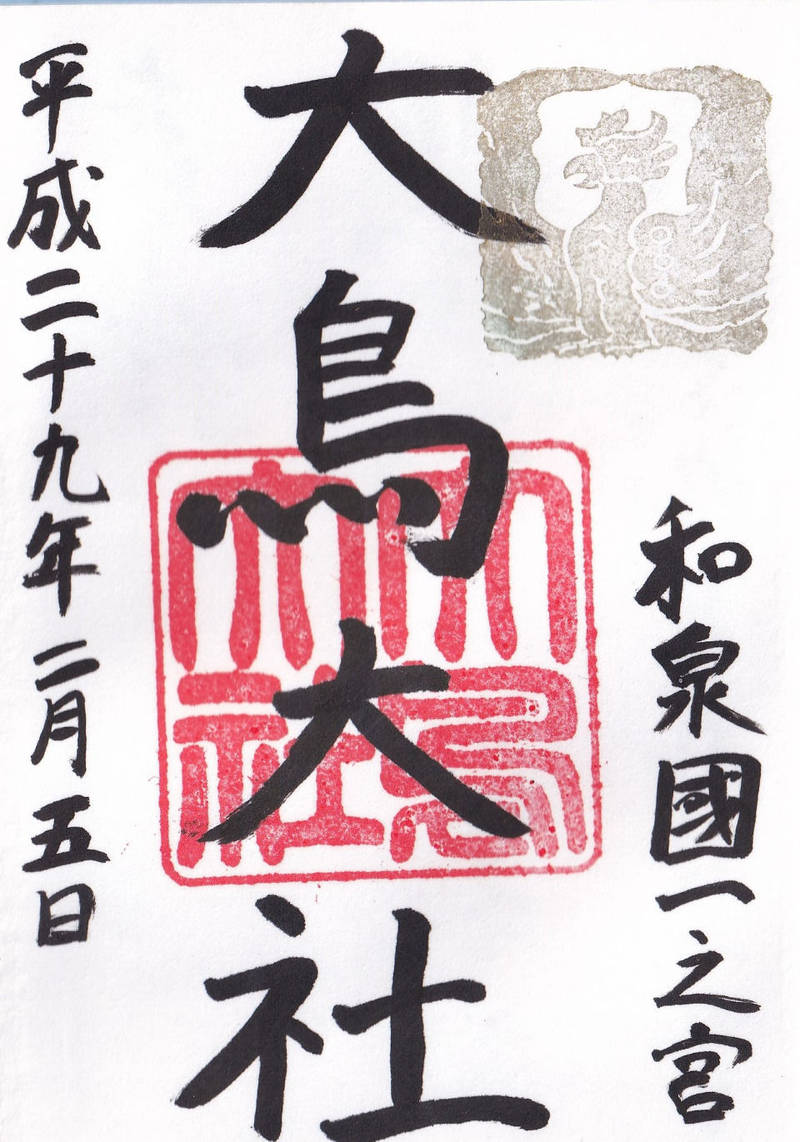 和泉國一之宮
大鳥大社
大鳥大社
平成二十九年二月五日